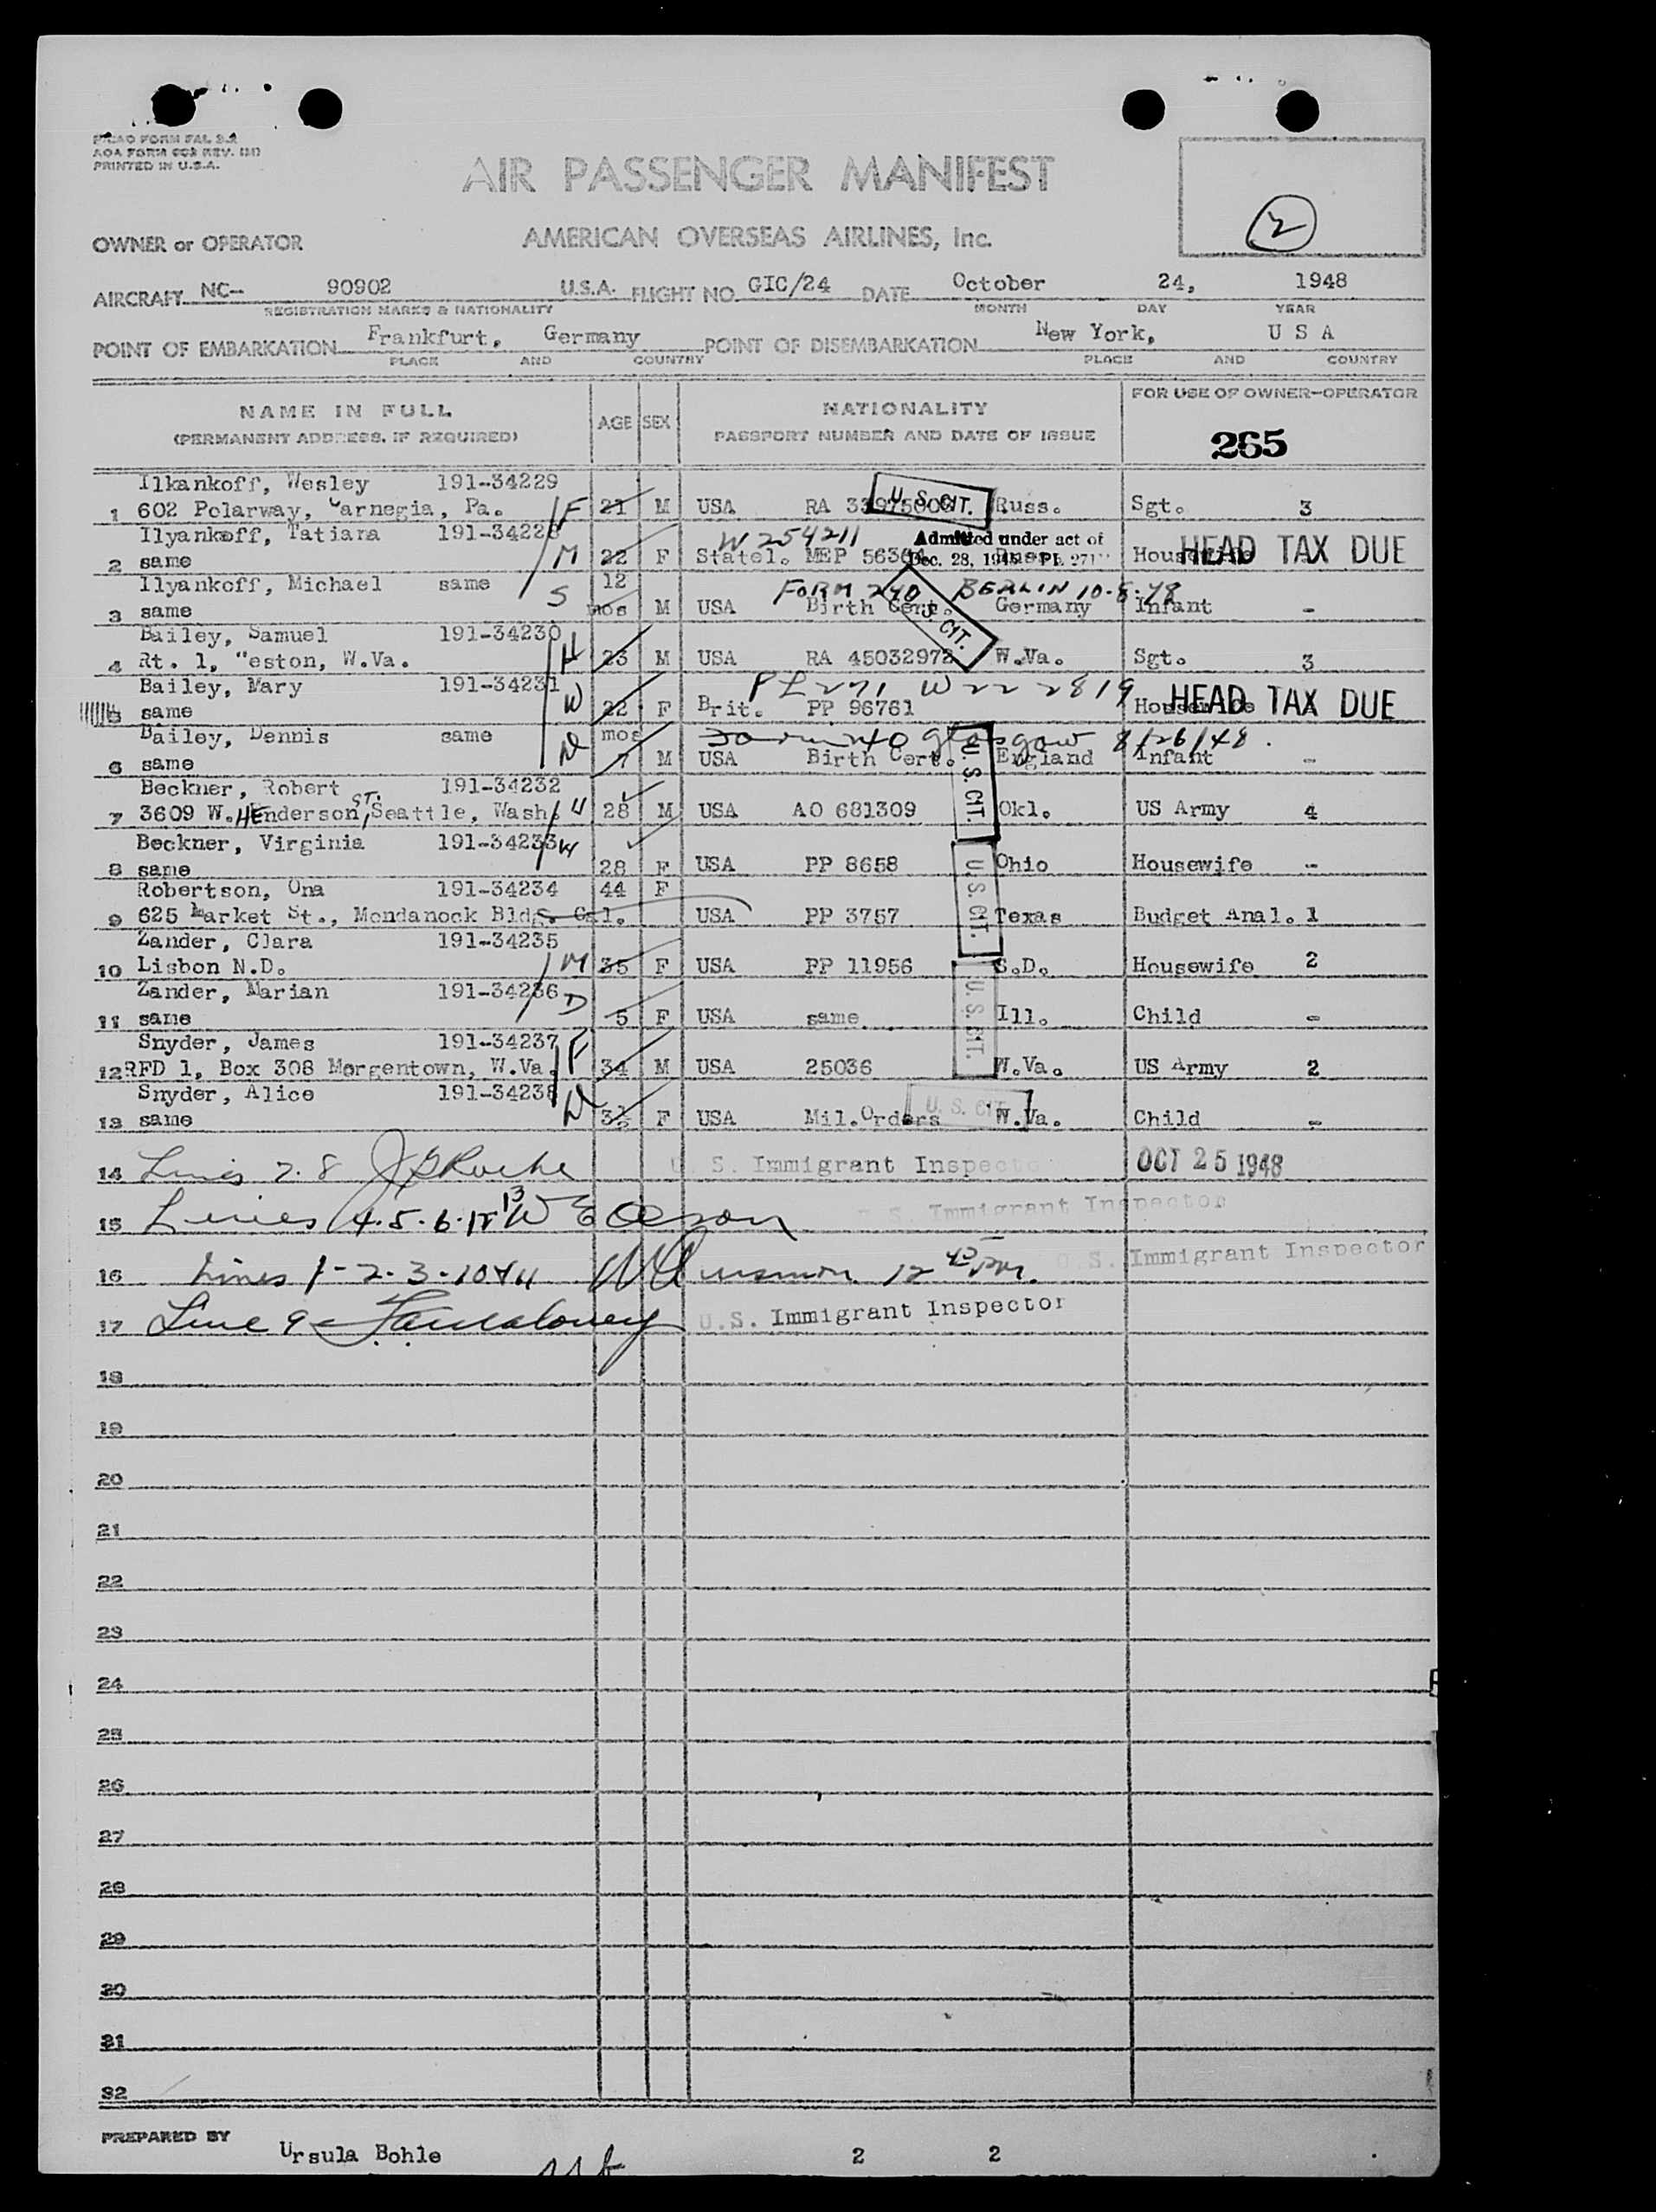 PICAO FORM FAL 3.2
AOA FORM 602 REV.
PRINTED IN U.S.A.
AIR PASSENGER MANIFEST
2
OWNER or OPERATOR AMERICAN OVERSEAS AIRLINES, Inc.
AIRCRAFT NC- 90902 U.S.A. FLIGHT NO. GIC/24 DATE October 24, 1948
REGISTRATION MARKS & NATIONALITY MONTH DAY YEAR
POINT OF EMBARKATION Frankfurt, Germany POINT OF DISEMBARKATION New York, U S A
PLACE AND COUNTRY PLACE AND COUNTRY
NAME IN FULL AGE SEX NATIONALITY FOR USE OF OWNER-OPERATOR
(PERMANENT ADDRESS, IF REQUIRED) PASSPORT NUMBER AND DATE OF ISSUE
265
Ilkankoff, Wesley 191-34229
1 602 Polarway, Carnegia, Pa. F 21 M USA RA U. S. CIT. Russ. Sgt. 3
Ilyankoff, Tatiara 191-34228 W 254211 Admitted under act of
2 same M 22 F Statel. MEP Dec. 28, 1945 PL 271 HEAD TAX DUE
Ilyankoff, Michael same 12 FORM 240 BERLIN 10-8-48
3 same S mos M USA Birth Cert. Germany Infant -
Bailey, Samuel 191-34230 U. S. CIT.
4 Rt. 1, "eston, W.Va. H 23 M USA RA 45032972 W.Va. Sgt. 3
Bailey, Mary 191-34231 PL271 W222819
5 same W 22 F Brit. PP 96761 Housewife HEAD TAX DUE
Bailey, Dennis same mos 240 glasgow 8/26/48.
6 same 7 M USA Birth Cert. England Infant -
Beckner, Robert 191-34232 U. S. CIT.
7 3609 W. HEnderson ST., Seattle, Wash. H 28 M USA AO 681309 Okl. US Army 4
Beckner, Virginia 191-34233 W
8 same 28 F USA PP 8658 Ohio Housewife -
Robertson, Ona 191-34234 44 F U. S. CIT.
9 625 Market St., Mondanock Bldg. Cal. USA PP 3757 Texas Budget Anal. 1
Zander, Clara 191-34235
10 Lisbon N.D. M 35 F USA PP 11956 S.D. Housewife 2
Zander, Marian 191-34236 U. S. CIT.
11 same D 5 F USA same Ill. Child -
Snyder, James 191-34237
12 RFD 1, Box 308 Morgentown, W.Va. F 34 M USA 25036 W.Va. US Army 2
Snyder, Alice 191-34238 U. S. CIT.
13 same F USA Mil.Orders W.Va. Child -
14 Lines 7-8 U. S. Immigrant Inspector OCT 25 1948
15 Lines 4.5.6.12 13 U. S. Immigrant Inspector
16 Lines 1-2-3-10&11 U. S. Immigrant Inspector
17 Line 9 U.S. Immigrant Inspector
18
19
20
21
22
23
24
25
26
27
28
29
30
31
32
PREPARED BY Ursula Bohle 2 2